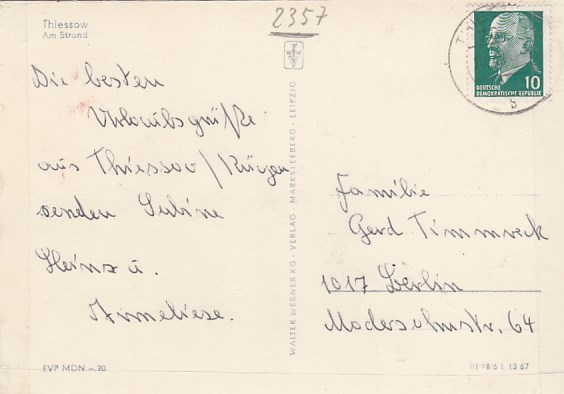 Thiessow
Am Strand
2357
10
DEUTSCHE
DEMOKRATISCHE REPUBLIK
Die besten
Urlaubsgrüße
aus Thiessow/Rügen
senden Sabine
Heinz u.
Anneliese.
WALTER WERNER KG · VERLAG · MARKKLEEBERG · LEIPZIG
Familie
Gerd Timmreck
1017 Berlin
Modersohnstr. 64
EVP MDN -.20
III/18/6 L 13 67